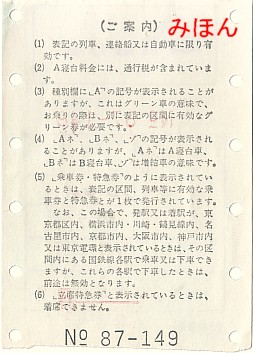 (ご案内)
みほん
(1) 表記の列車、連絡船又は自動車に限り有
効です。
(2) A寝台料金には、通行税が含まれていま
す。
(3) 種別欄に「A」の記号が表示されることが
ありますが、これはグリーン車の意味で、
お乗りの際は、別に表記の区間に有効なグ
リーン券が必要です。
(4) 「Aネ」、「Bネ」、「ゾ」の記号が表示され
ることがありますが、「Aネ」はA寝台車、
「Bネ」はB寝台車、「ゾ」は増結車の意味です。
(5) 「乗車券・特急券」のように表示されてい
るときは、表記の区間、列車等に有効な乗
車券と特急券とが1枚で発行されています。
なお、この場合で、発駅又は着駅が、東
京都区内、横浜市内・川崎・鶴見線内、名
古屋市内、京都市内、大阪市内、神戸市内
又は東京電環と表示されているときは、その区
間内にある国鉄線各駅で乗車又は下車でき
ますが、これらの各駅で下車したときは、
前途は無効となります。
(6) 「立席特急券」と表示されているときは、
着席できません。
No 87-149